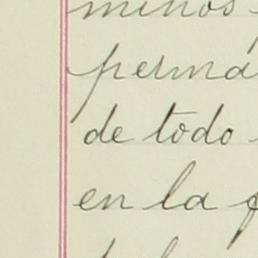 minos
permá
de todo
en la